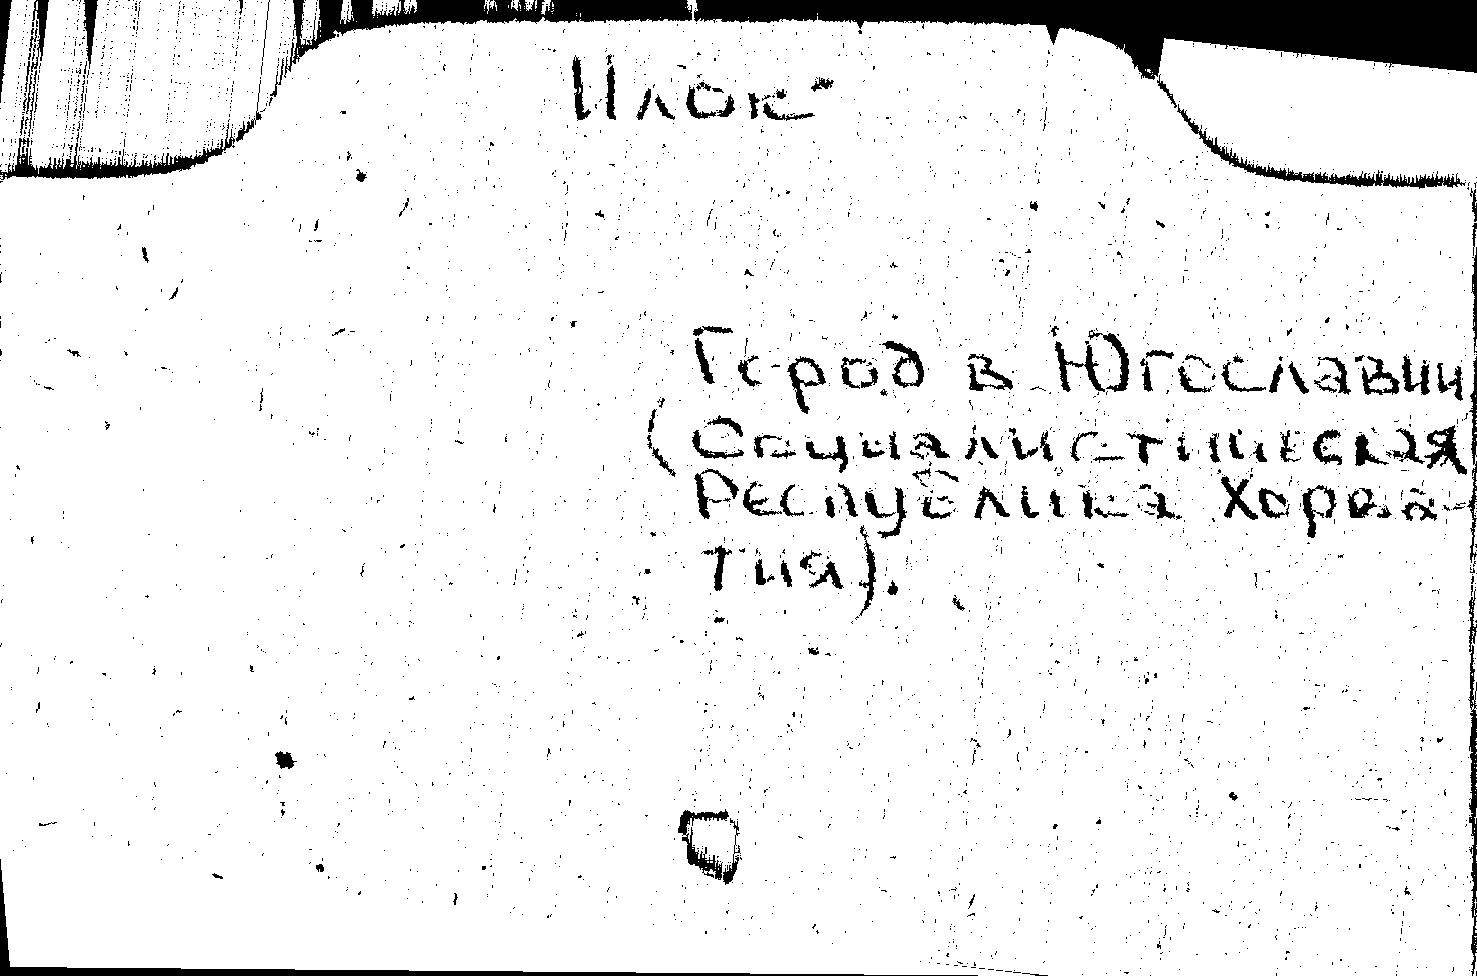 Илок
Город в Югославии
(Социалистическая
Республика Хорва-
тия).